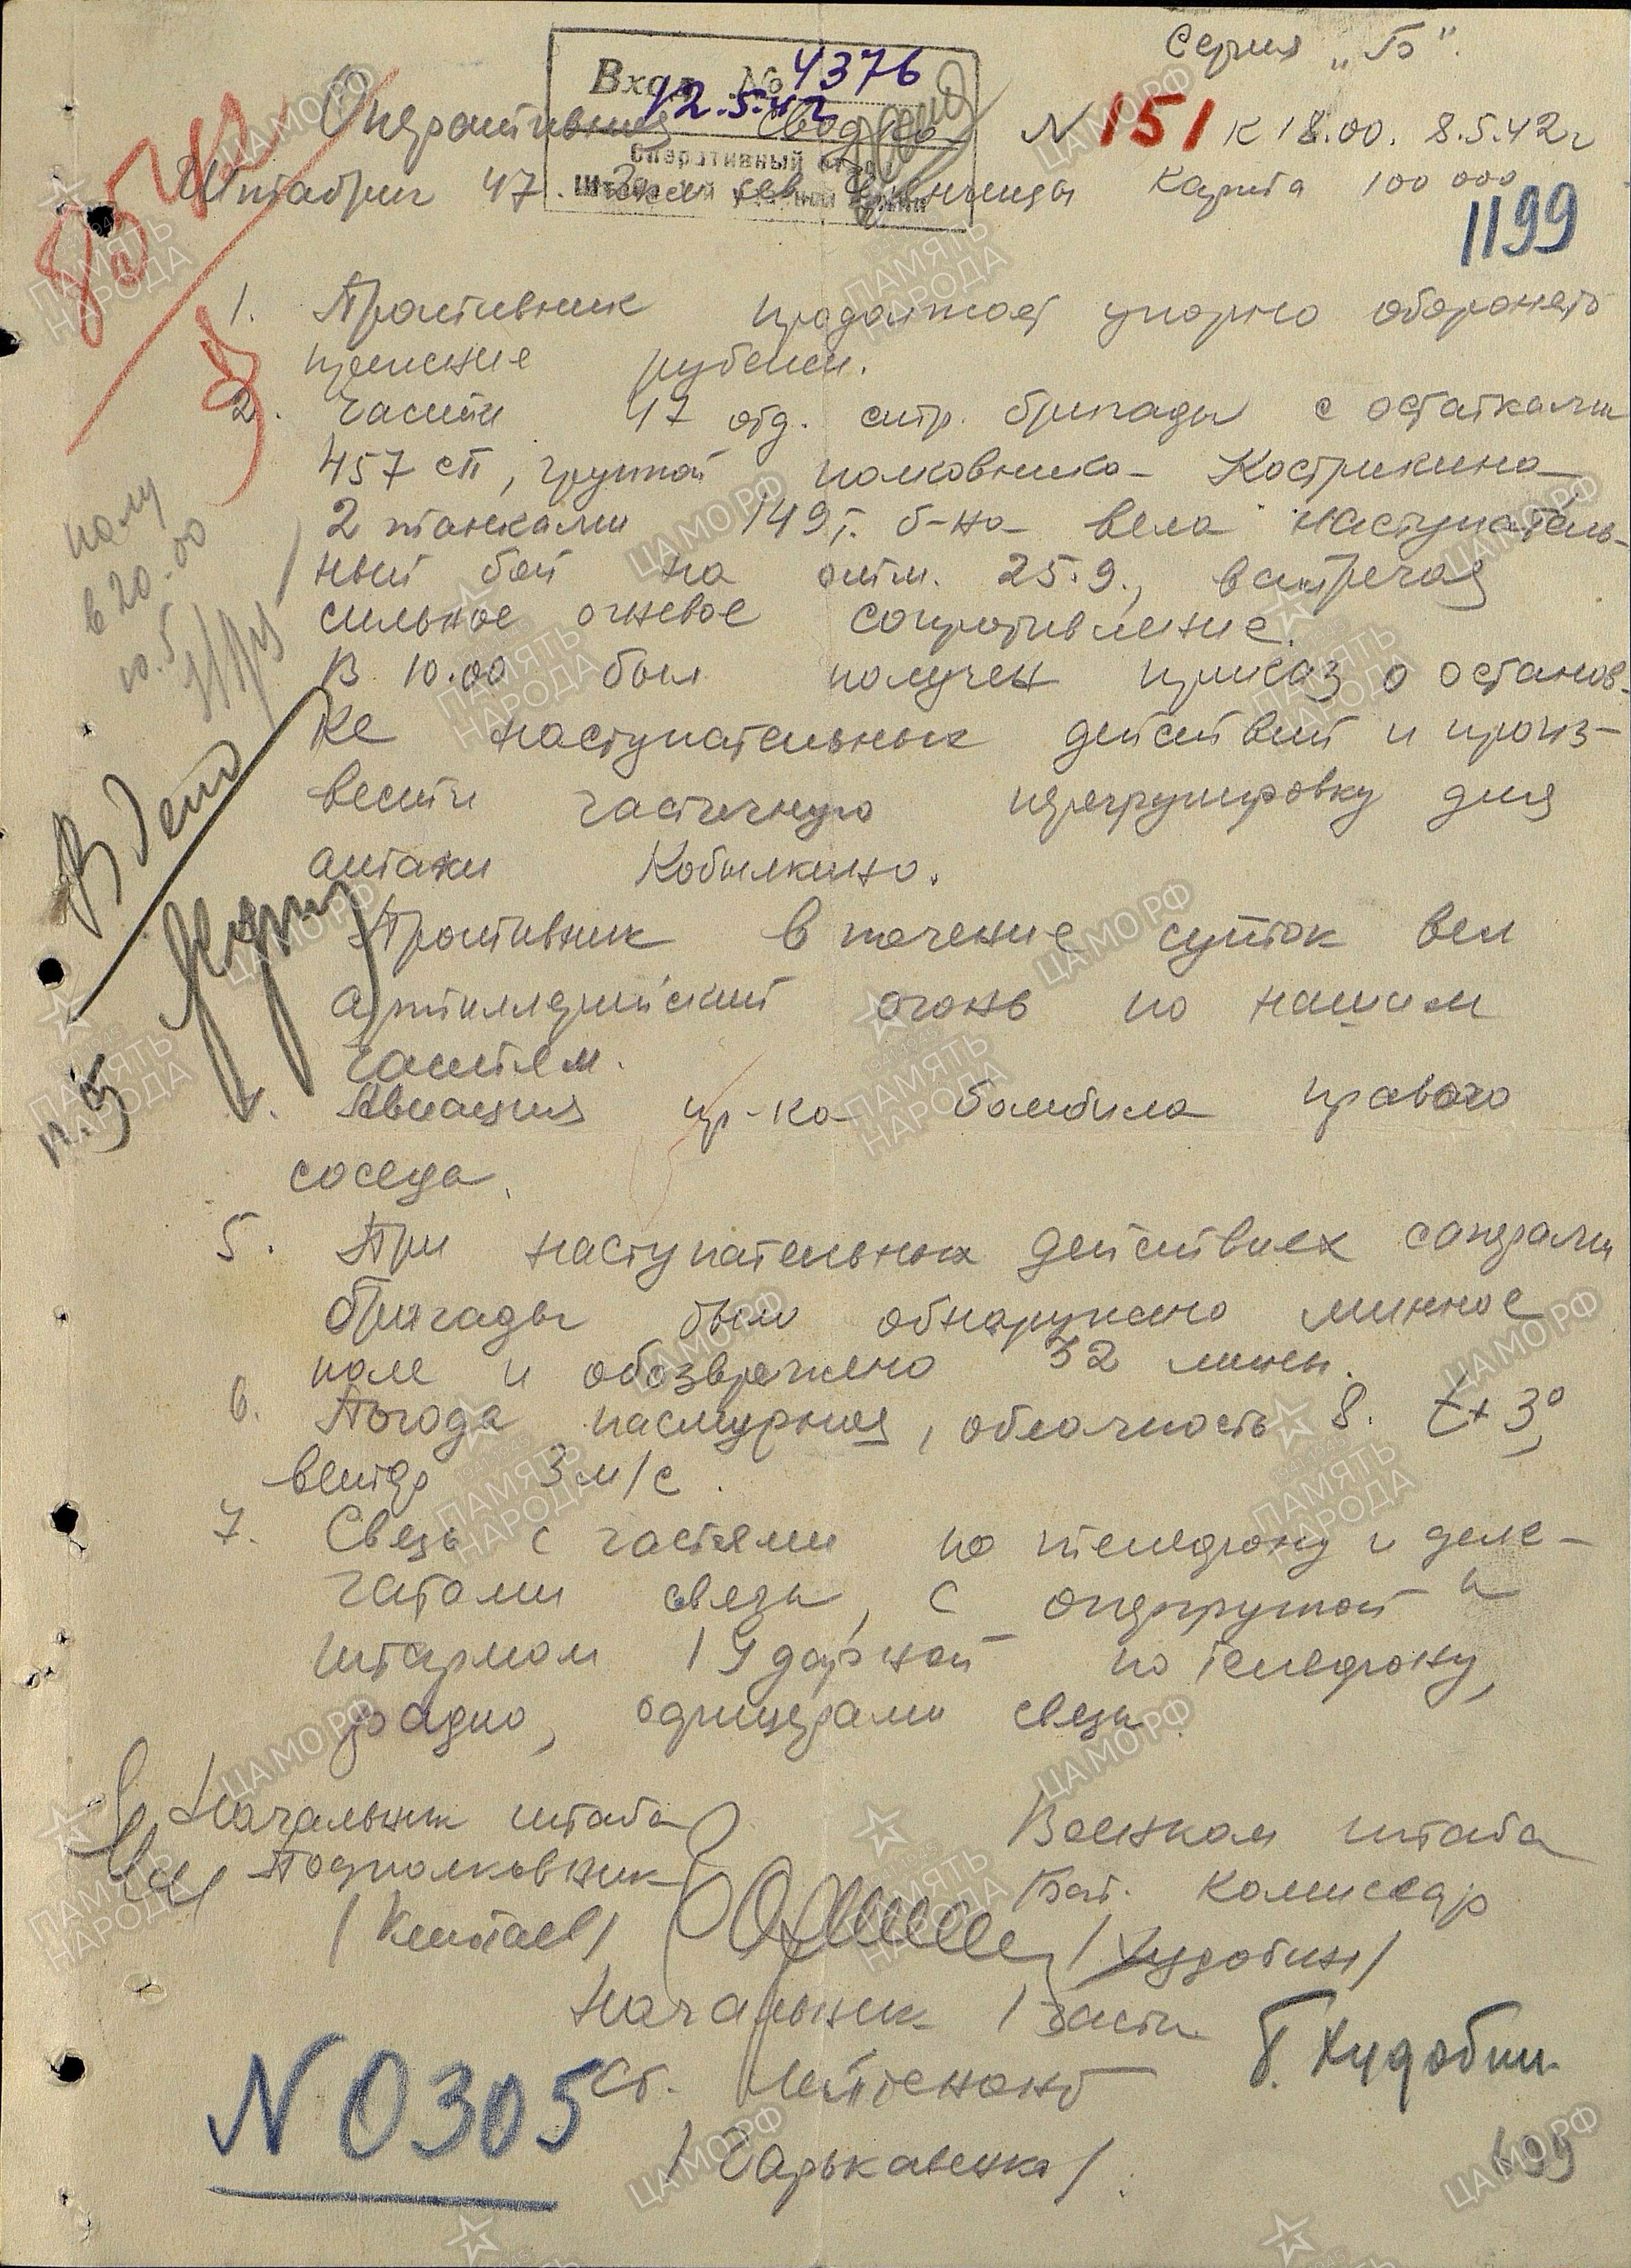 Серия „Б".
Вход. № 4376
12.5.42г
Оперативный
Оперативная сводка № 151 к 18.00. 8.5.42г
Штабриг 47. 2 км сев. Карта 100 000
1199
1. Противник продолжает упорно оборонять
прежние рубежи.
2. Части 47 отд. стр. бригады с остатками
457 сп, группой полковника Кострикина
2 танками 149 т. б-на вела наступатель-
ный бой на отм. 25.9., встречая
сильное огневое сопротивление.
В 10.00 был получен приказ о останов-
ке наступательных действий и произ-
вести частичную перегрупировку для
атаки Кобылкино.
Противник в течение суток вел
артиллерийский огонь по нашим
частям.
4. Авиация пр-ка бомбила правого
соседа.
5. При наступательных действиях саперами
бригады было обнаружено минное
поле и обезврежено 32 мины.
6. Погода пасмурная, облачность 8. t+3°,
ветер 3 м/с.
7. Связь с частями по телефону и деле-
гатами связи, с опергрупой и
штармом 1 Ударной по телефону,
радио, офицерами связи.
Начальник штаба
Подполковник
Военком штаба
Бат. комиссар
/Худобин/
Начальник 1 части
Ст. лейтенант
/Гарькавенко/.
Б. Худобин
N 0305
699
полу
в 20.00
10.5
В дело
п. 5
ЦАМО РФ
ПАМЯТЬ
НАРОДА